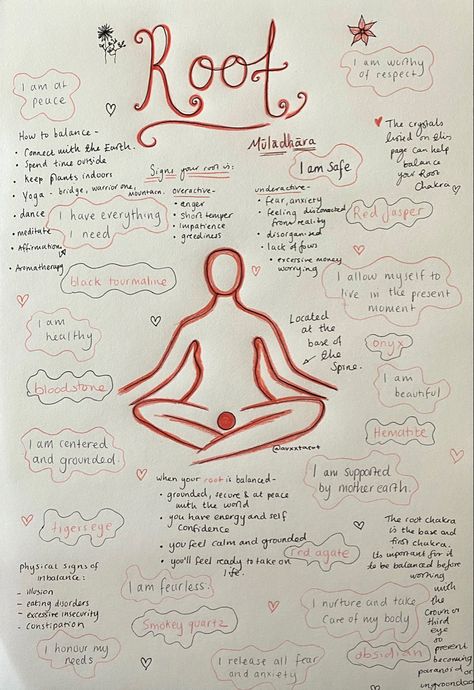 Root
Mūladhāra
I am at
peace
I am worthy
of respect
How to balance -
• Connect with the Earth.
• Spend time outside
• Keep plants indoors
• Yoga - bridge, warrior one, mountain.
• dance
• meditate
• Affirmations
• Aromatherapy
Signs your root is:
overactive -
• anger
• short temper
• impatience
• greediness
I am Safe
underactive -
• fear, anxiety
• feeling disconnected
from reality
• disorganised
• lack of focus
• excessive money
worrying
The crystals
listed on this
page can help
balance
your Root
Chakra
Red Jasper
I have everything
I need
black tourmaline
I allow myself to
live in the present
moment
I am
healthy
Located
at the
base of
the
Spine.
onyx
bloodstone
I am
beautiful
Hematite
I am centered
and grounded.
@avxxtarot
I am supported
by mother earth.
when your root is balanced -
• grounded, secure & at peace
with the world
• you have energy and self
confidence
• you feel calm and grounded
• you'll feel ready to take on
life.
tigers eye
red agate
The root chakra
is the base and
first chakra.
Its important for it
to be balanced before
working
with
the
Crown or
third
eye
to
prevent
becoming
paranoid or
ungrounded
physical signs of
imbalance:
- illusion
- eating disorders
- excessive insecurity
- Constipation
I am fearless.
Smokey quartz
I nurture and take
care of my body
I honour my
needs
I release all fear
and anxiety
obsidian